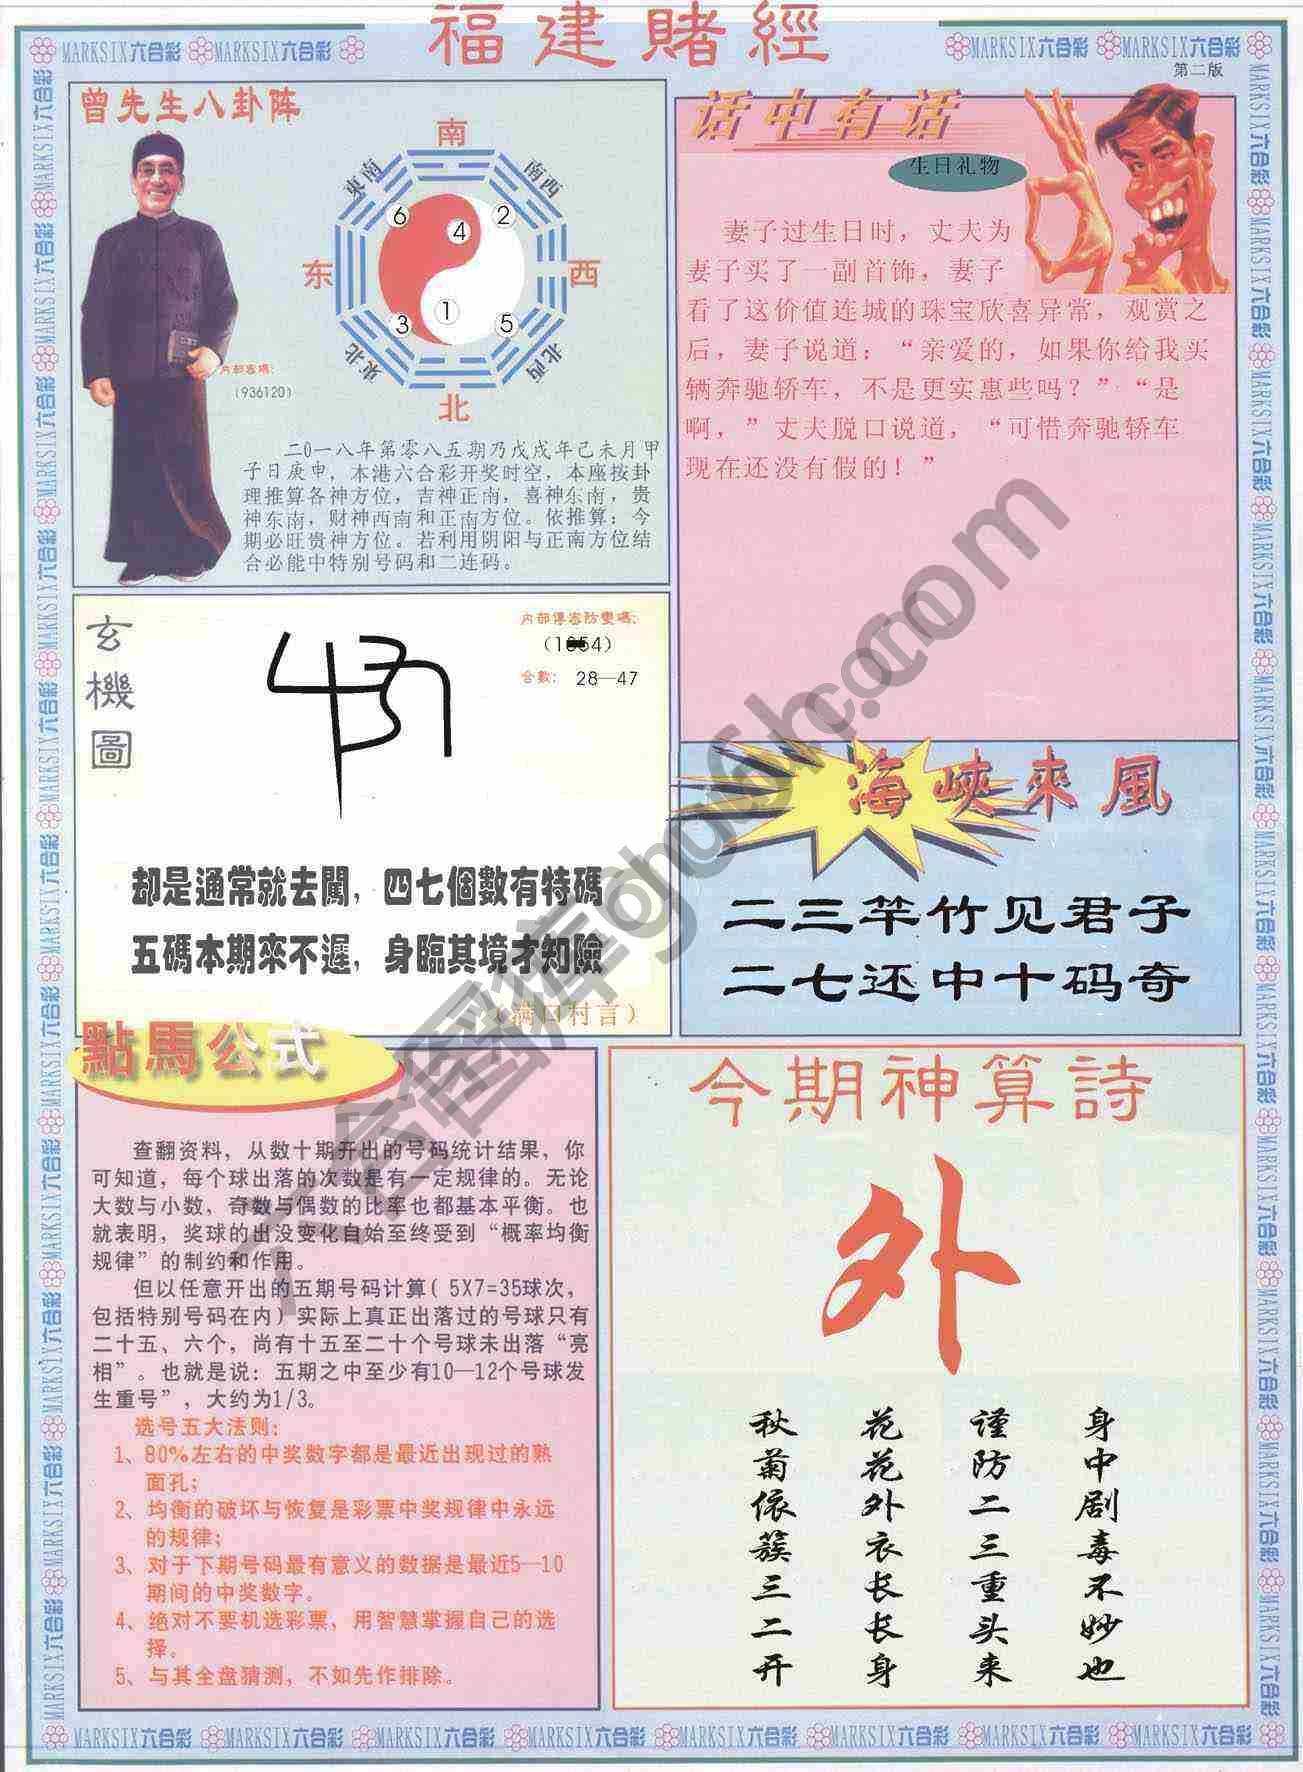 福建賭經
MARKSIX六合彩 MARKSIX六合彩
MARKSIX六合彩 MARKSIX六合彩
第二版
曾先生八卦阵
南
東南
南西
6
4
2
东
西
1
3
5
東北
北西
北
内部密碼：
(936120)
二0一八年第零八五期乃戊戌年己未月甲
子日庚申，本港六合彩开奖时空，本座按卦
理推算各神方位，吉神正南，喜神东南，贵
神东南，财神西南和正南方位。依推算：今
期必旺贵神方位。若利用阴阳与正南方位结
合必能中特别号码和二连码。
话中有话
生日礼物
妻子过生日时，丈夫为
妻子买了一副首饰，妻子
看了这价值连城的珠宝欣喜异常，观赏之
后，妻子说道：“亲爱的，如果你给我买
辆奔驰轿车，不是更实惠些吗？”“是
啊，”丈夫脱口说道，“可惜奔驰轿车
现在还没有假的！”
玄機圖
内部傳密防變碼：
合數： 28—47
却是通常就去闖，四七個數有特碼
五碼本期來不遲，身臨其境才知險
（满口村言）
海峽來風
二三竿竹见君子
二七还中十码奇
點馬公式
查翻资料，从数十期开出的号码统计结果，你
可知道，每个球出落的次数是有一定规律的。无论
大数与小数，奇数与偶数的比率也都基本平衡。也
就表明，奖球的出没变化自始至终受到“概率均衡
规律”的制约和作用。
但以任意开出的五期号码计算( 5X7=35球次，
包括特别号码在内）实际上真正出落过的号球只有
二十五、六个，尚有十五至二十个号球未出落“亮
相”。也就是说：五期之中至少有10—12个号球发
生重号”，大约为1/3。
选号五大法则：
1、80%左右的中奖数字都是最近出现过的熟
面孔；
2、均衡的破坏与恢复是彩票中奖规律中永远
的规律；
3、对于下期号码最有意义的数据是最近5—10
期间的中奖数字。
4、绝对不要机选彩票，用智慧掌握自己的选
择。
5、与其全盘猜测，不如先作排除。
今期神算詩
外
身中剧毒不妙也
谨防二三重头来
花花外衣长长身
秋菊依簇三二开
六合图库
MARKSIX六合彩 MARKSIX六合彩 MARKSIX六合彩 MARKSIX六合彩 MARKSIX六合彩 MARKSIX六合彩 MARKSIX六合彩 MARKSIX六合彩